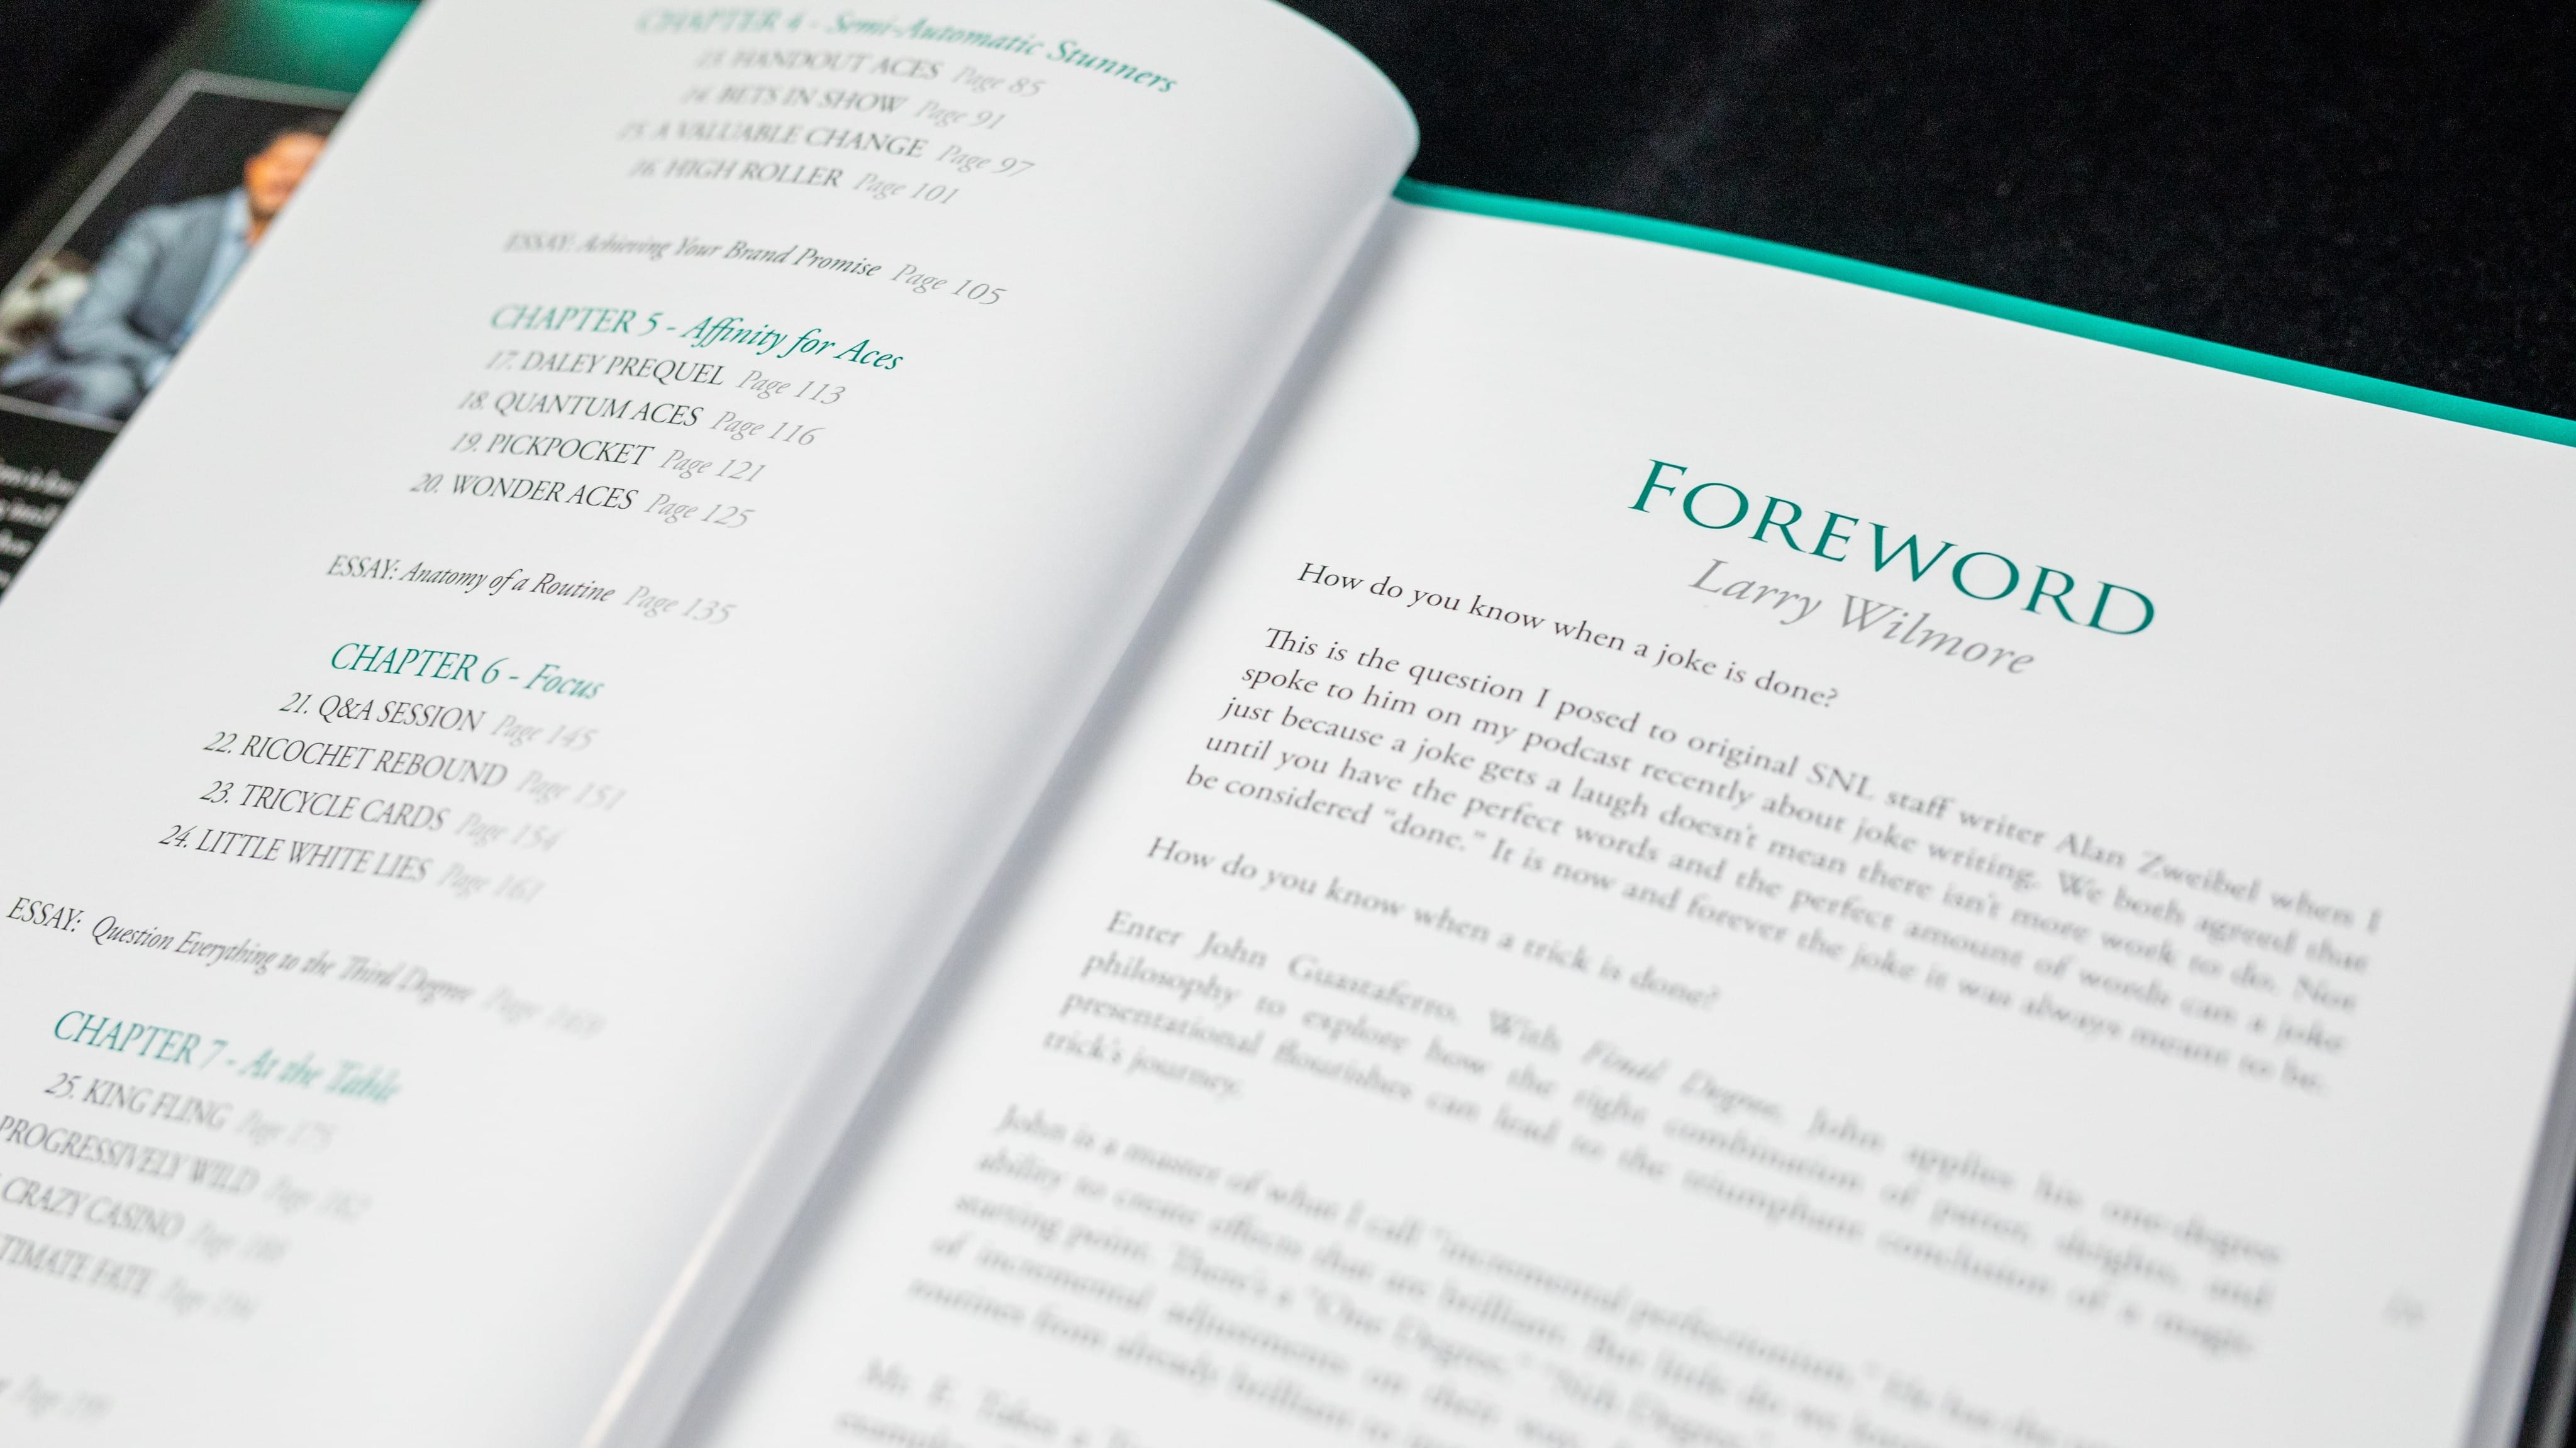 CHAPTER 4 - Semi-Automatic Stunners
13. HANDOUT ACES Page 85
14. BETS IN SHOW Page 91
15. A VALUABLE CHANGE Page 97
16. HIGH ROLLER Page 101
ESSAY: Achieving Your Brand Promise Page 105
CHAPTER 5 - Affinity for Aces
17. DALEY PREQUEL Page 113
18. QUANTUM ACES Page 116
19. PICKPOCKET Page 121
20. WONDER ACES Page 125
ESSAY: Anatomy of a Routine Page 135
CHAPTER 6 - Focus
21. Q&A SESSION Page 145
22. RICOCHET REBOUND Page 151
23. TRICYCLE CARDS Page 154
24. LITTLE WHITE LIES Page 161
ESSAY: Question Everything to the Third Degree Page
CHAPTER 7 - At the Table
25. KING FLING Page 175
PROGRESSIVELY WILD Page
CRAZY CASINO Page
TIMATE FATE Page
Page
FOREWORD
Larry Wilmore
How do you know when a joke is done?
This is the question I posed to original SNL staff writer Alan Zweibel when I
spoke to him on my podcast recently about joke writing. We both agreed that
just because a joke gets a laugh doesn't mean there isn't more work to do. Not
until you have the perfect words and the perfect amount of words can a joke
be considered “done.” It is now and forever the joke it was always meant to be.
How do you know when a trick is done?
Enter John Guastaferro. With Final Degree, John applies his one-degree
philosophy to explore how the right combination of patter, sleights, and
presentational flourishes can lead to the triumphant conclusion of a magic
trick's journey.
John is a master of what I call “incremental perfectionism.” He has the
ability to create effects that are brilliant. But little do we know
starting point. There's a “One Degree,” “Still Degree,”
of incremental adjustments on their way
routines from already brilliant to
Mr. E. Takes a